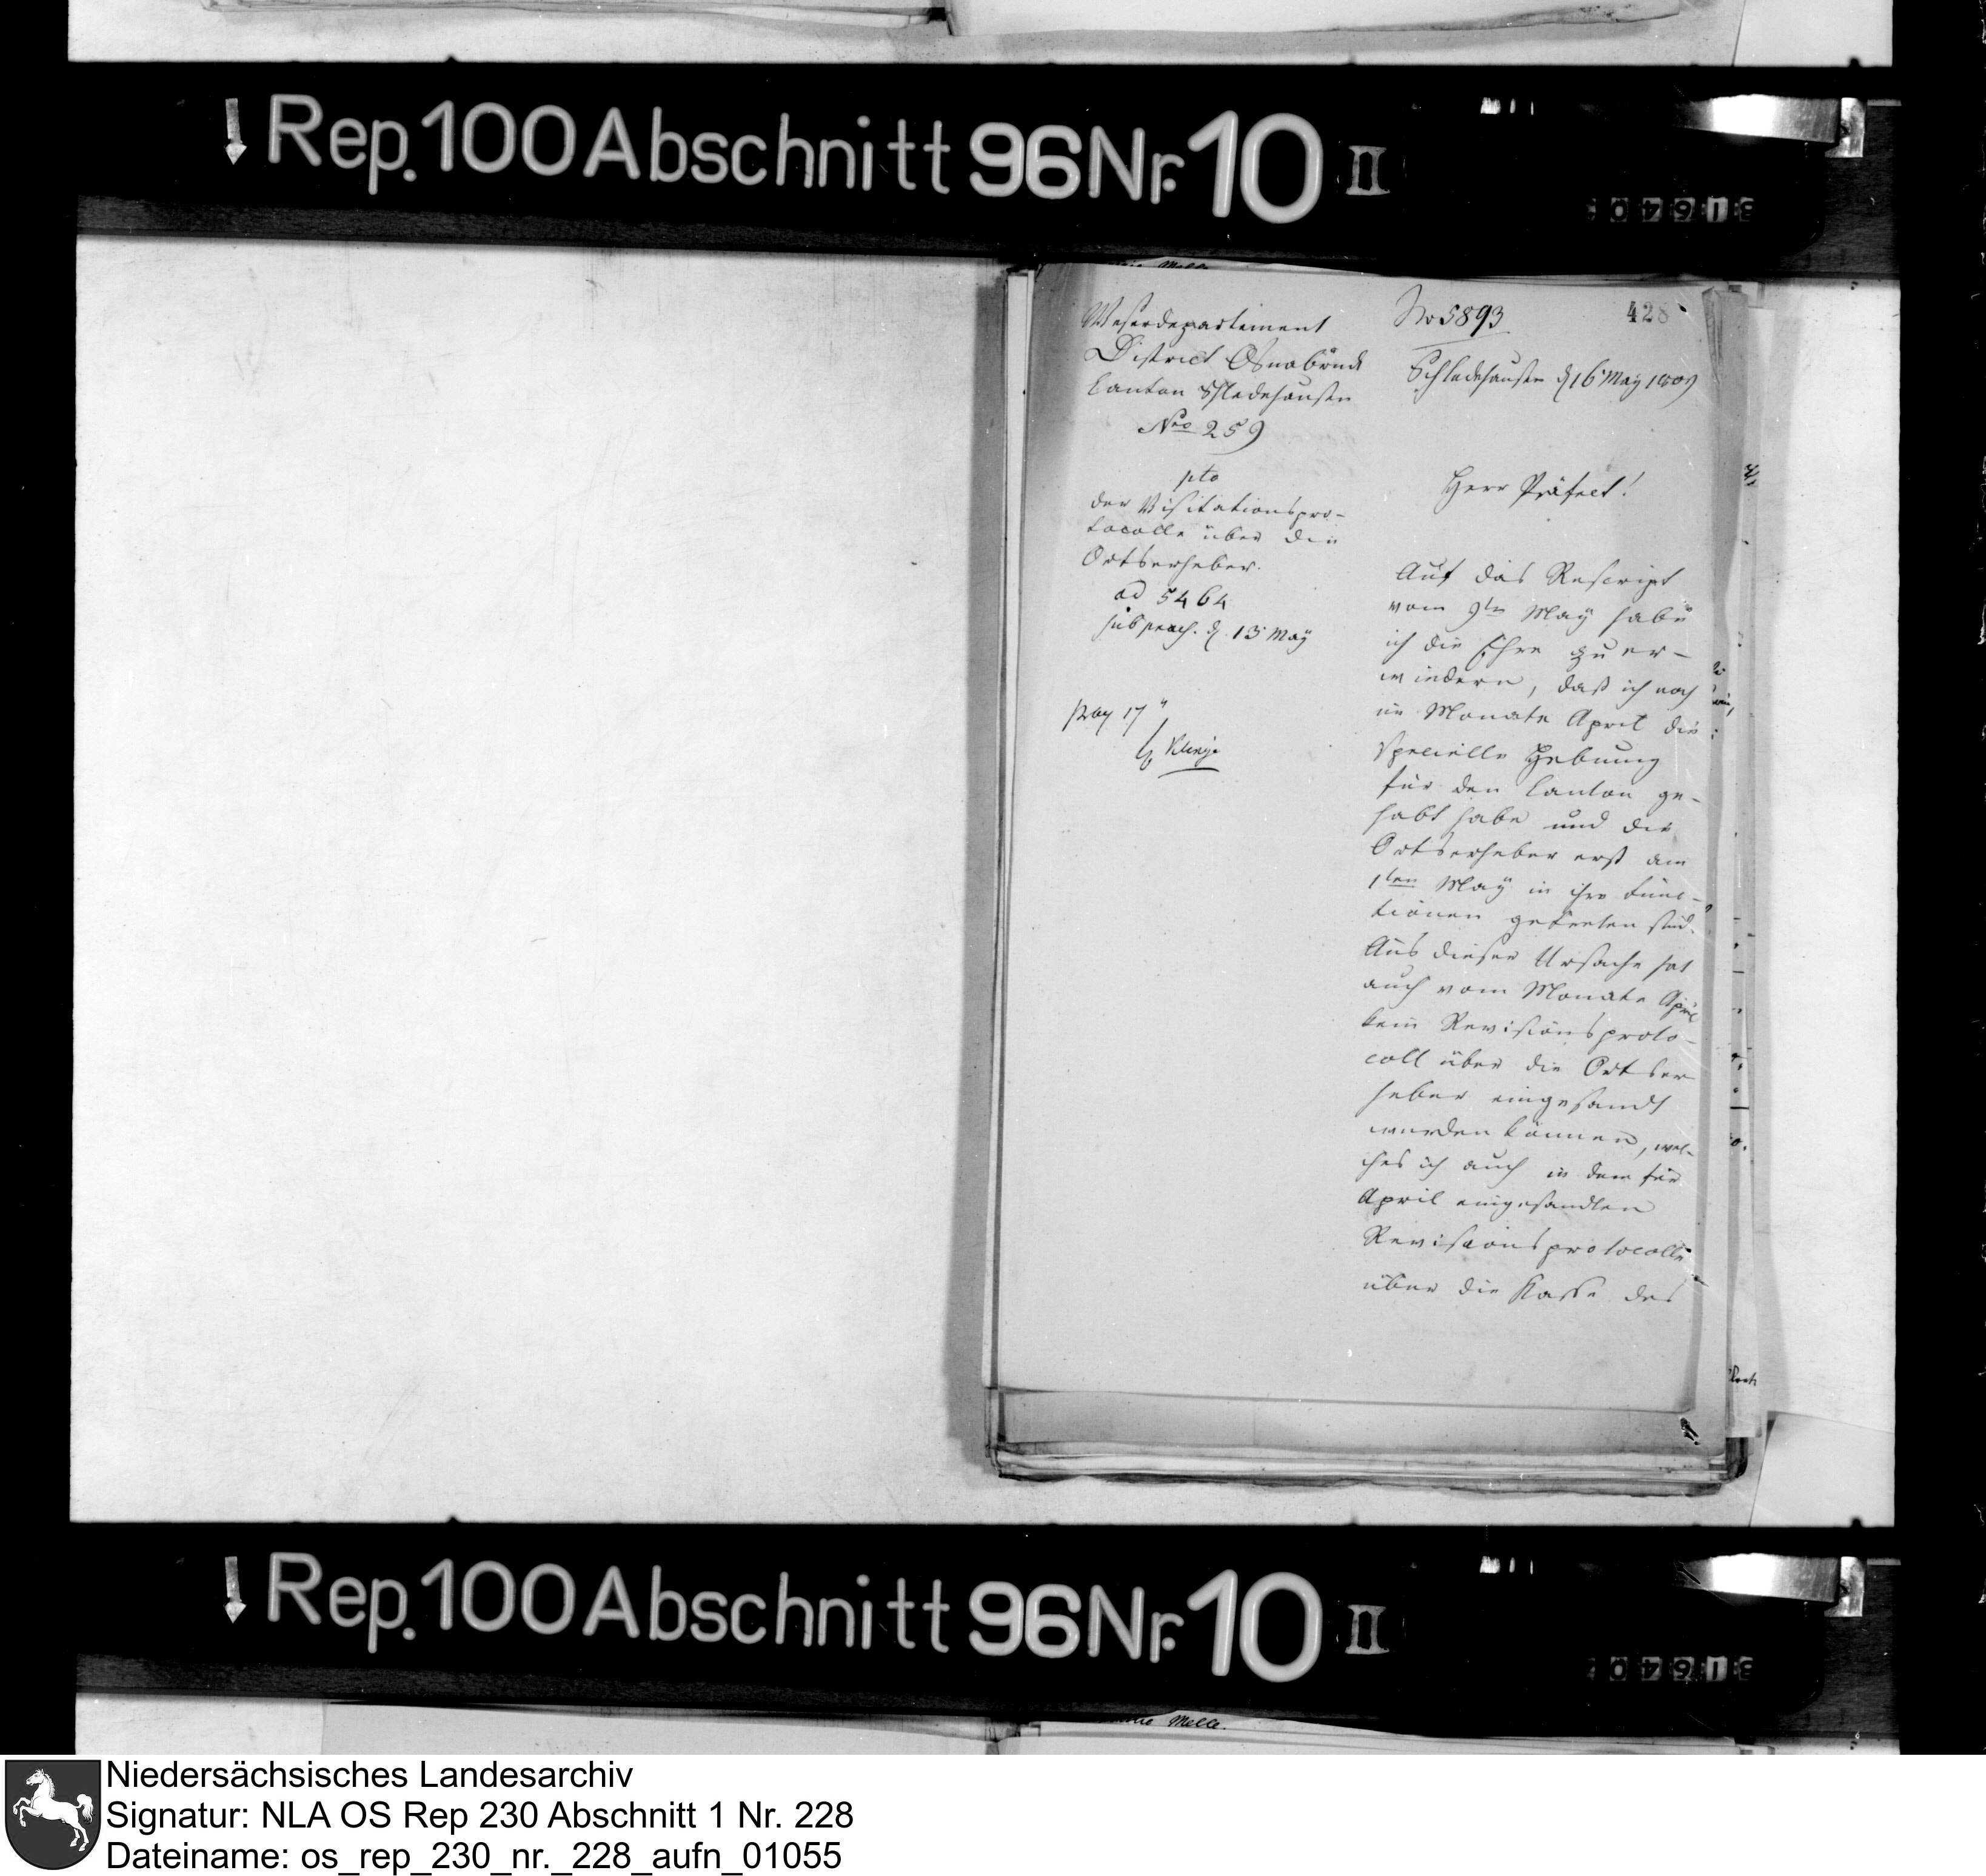 Rep. 100 Abschnitt 96 Nr. 10 II
Weserdepartement
District Osnabrück
Canton Schledehausen
Nro 259
pto
der Visitationspro-
tocolle über die
Ortserheber.
ad 5464
sub praes. d. 13 May
No 5893
428
Schledehausen d 16 May 1809
Herr Präfect!
Auf das Rescript
vom 9ten May habe
ich die Ehre zu er-
wiedern, daß ich noch
im Monate April die
specielle Hebung
für den Canton ge-
habt habe und die
Ortserheber erst am
1ten May in ihre Func-
tionen getreten sind.
Aus dieser Ursache hat
auch vom Monate April
kein Revisionsproto-
coll über die Ortser
heber eingesandt
werden können, wel-
ches ich auch in dem für
April eingesandten
Revisionsprotocolle
über die Kasse des
Rep. 100 Abschnitt 96 Nr. 10 II
Melle.
Niedersächsisches Landesarchiv
Signatur: NLA OS Rep 230 Abschnitt 1 Nr. 228
Dateiname: os_rep_230_nr._228_aufn_01055